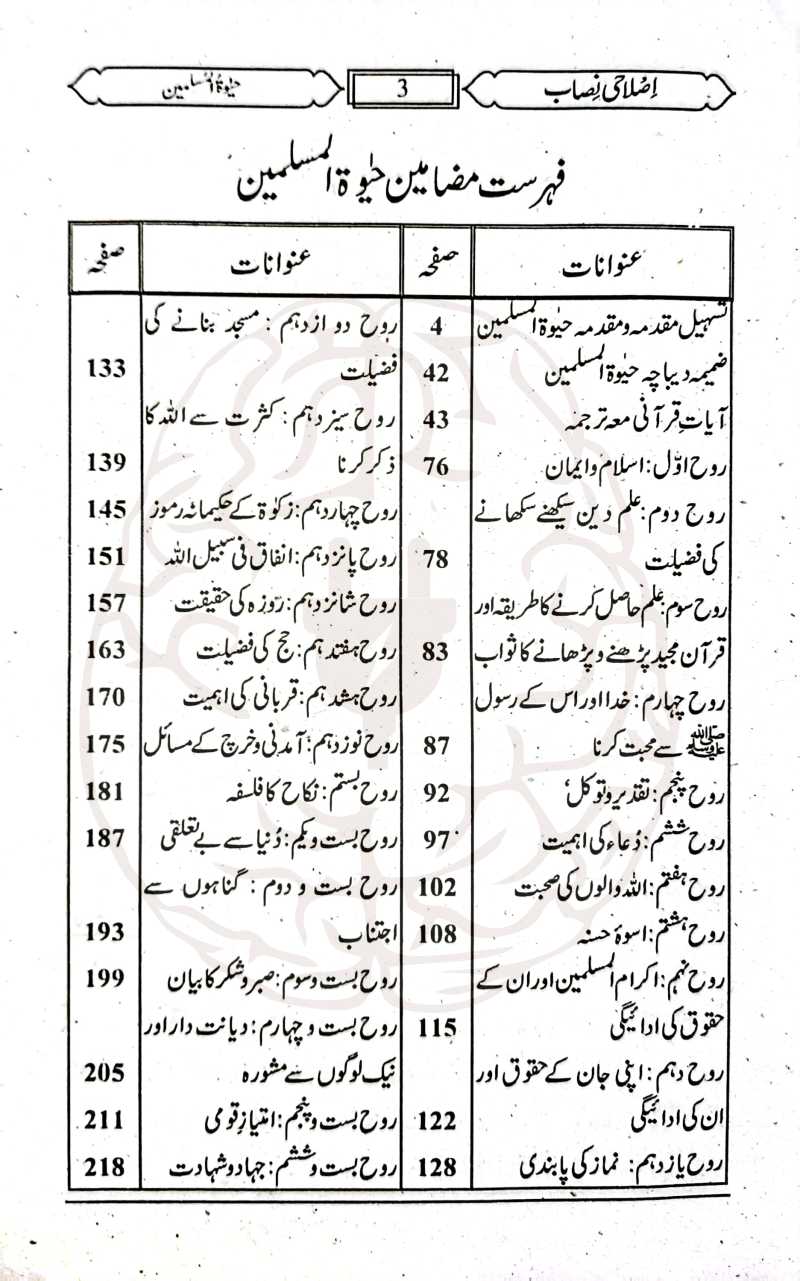 اِصلاحی نِصاب
3
حیٰوۃ المسلمین
فہرست مضامین حیٰوۃ المسلمین
عنوانات صفحہ
تسہیل مقدمہ و مقدمہ حیٰوۃ المسلمین 4
ضمیمہ دیباچہ حیٰوۃ المسلمین 42
آیاتِ قرآنی معہ ترجمہ 43
روح اوّل: اسلام و ایمان 76
روح دوم: علم دین سیکھنے سکھانے
کی فضیلت 78
روح سوم: علم حاصل کرنے کا طریقہ اور
قرآن مجید پڑھنے و پڑھانے کا ثواب 83
روح چہارم: خدا اور اس کے رسول
ﷺ سے محبت کرنا 87
روح پنجم: تقدیر و توکل 92
روح ششم: دُعاء کی اہمیت 97
روح ہفتم: اللہ والوں کی صحبت 102
روح ہشتم: اسوۂ حسنہ 108
روح نہم: اکرام المسلمین اور ان کے
حقوق کی ادائیگی 115
روح دہم: اپنی جان کے حقوق اور
ان کی ادائیگی 122
روح یازدہم: نماز کی پابندی 128
عنوانات صفحہ
روح دوازدہم: مسجد بنانے کی
فضیلت 133
روح سیزدہم: کثرت سے اللہ کا
ذکر کرنا 139
روح چہاردہم: زکوٰۃ کے حکیمانہ رموز 145
روح پانزدہم: انفاق فی سبیل اللہ 151
روح شانزدہم: روزہ کی حقیقت 157
روح ہفتدہم: حج کی فضیلت 163
روح ہشدہم: قربانی کی اہمیت 170
روح نوزدہم: آمدنی و خرچ کے مسائل 175
روح بستم: نکاح کا فلسفہ 181
روح بست ویکم: دُنیا سے بے تعلقی 187
روح بست و دوم: گناہوں سے
اجتناب 193
روح بست وسوم: صبر و شکر کا بیان 199
روح بست و چہارم: دیانت دار اور
نیک لوگوں سے مشورہ 205
روح بست و پنجم: امتیازِ قومی 211
روح بست وششم: جہاد و شہادت 218